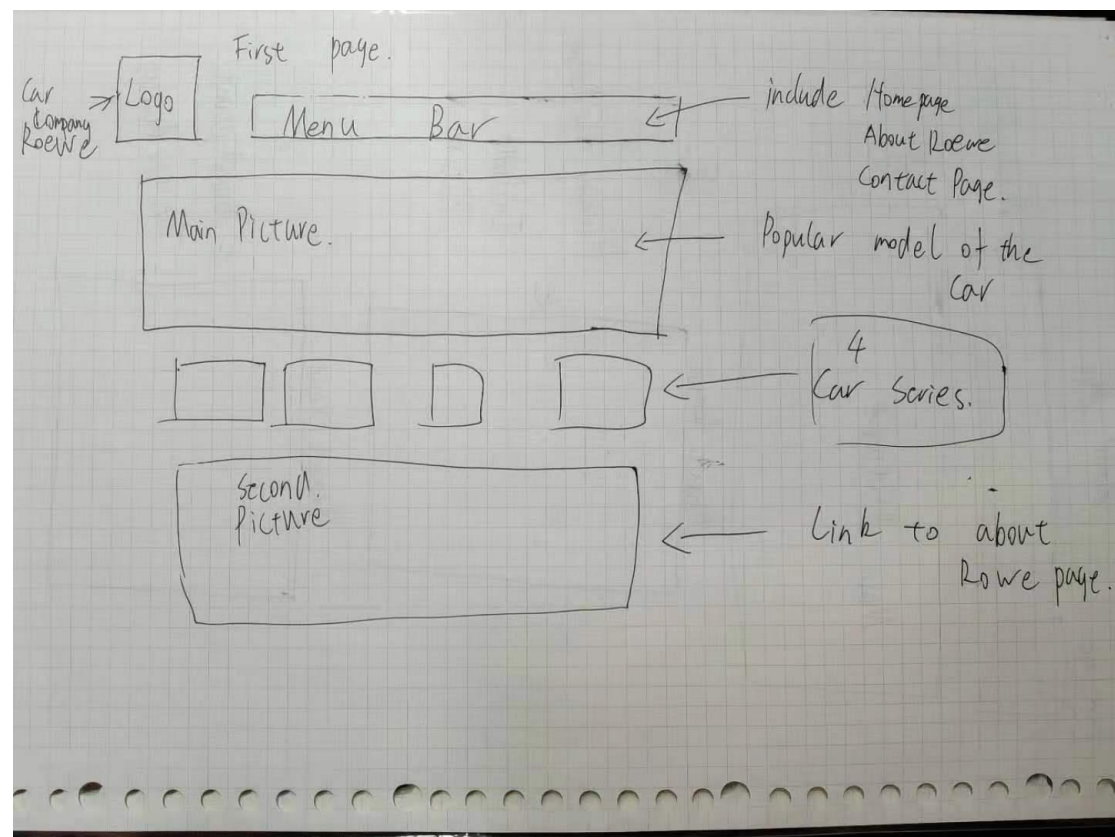 First page.
Car
Company
Roewe
Logo
Menu Bar
include Homepage
About Roewe
Contact Page.
Main Picture.
Popular model of the
Car
4
Car Series.
Second.
Picture
Link to about
Rowe page.